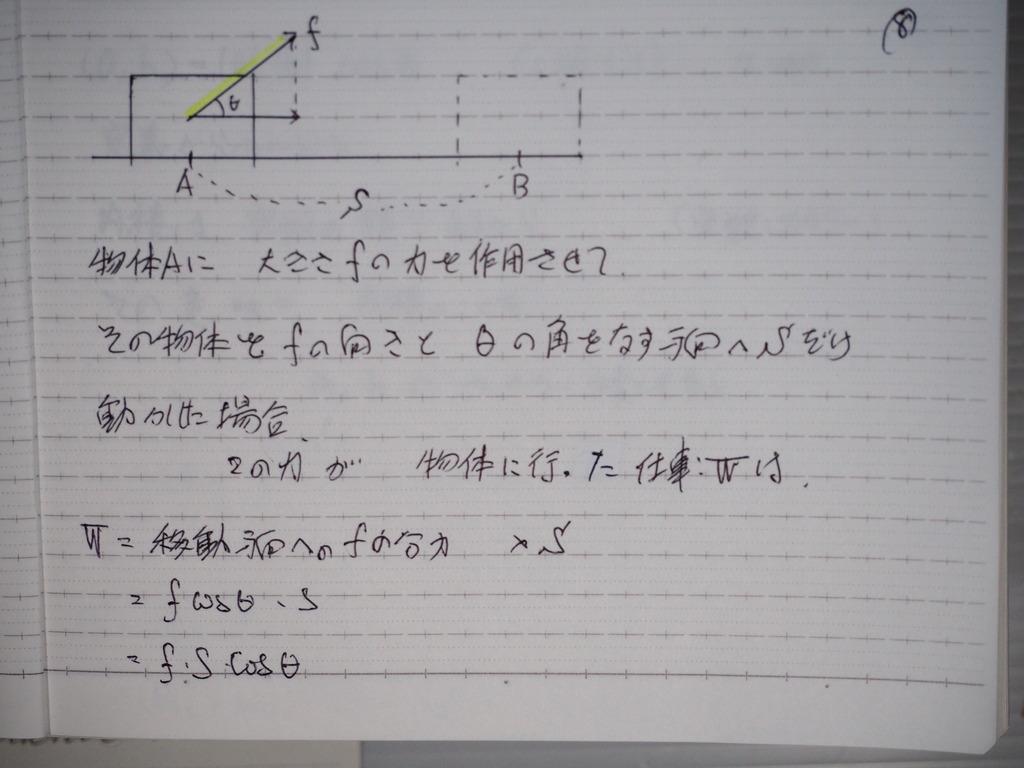 ⑧
f
θ
A
B
S
物体Aに 大きさfの力を作用させて、
その物体をfの向きとθの角をなす方向へSだけ
動かした場合、
この力が 物体に行った仕事:Wは、
W = 移動方向へのfの分力 × S
= f cosθ・S
= f・S・cosθ